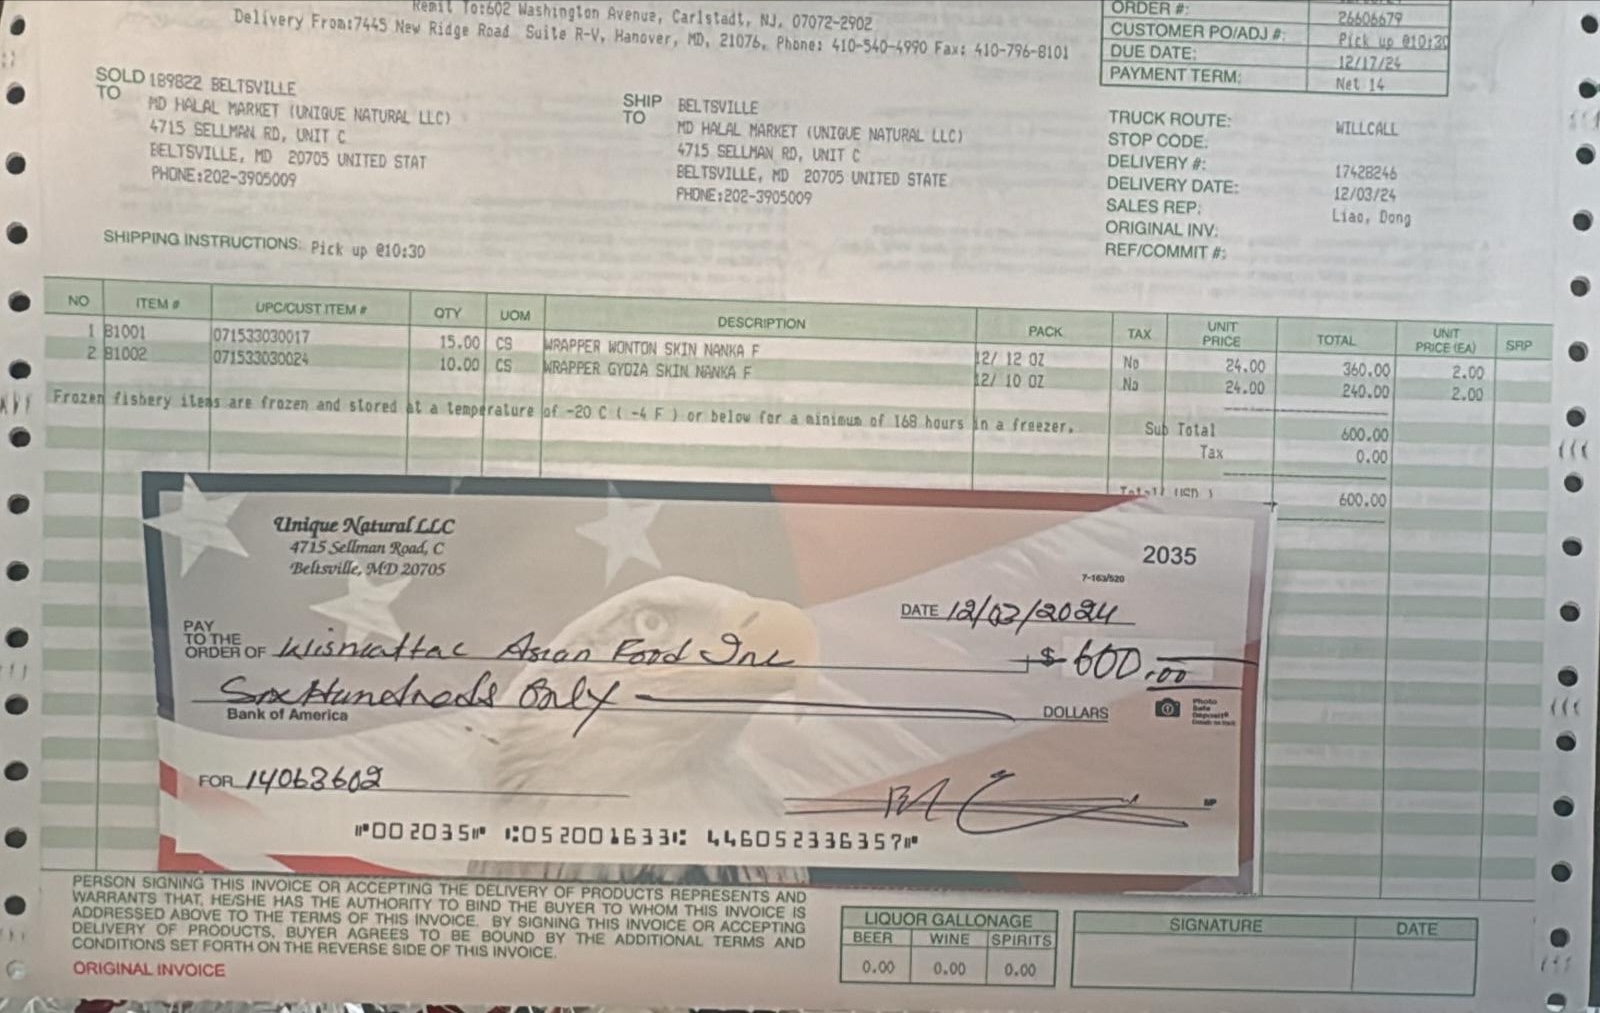 Remit To:602 Washington Avenue, Carlstadt, NJ, 07072-2902
Delivery From:7445 New Ridge Road Suite R-V, Hanover, MD, 21076, Phone: 410-540-4990 Fax: 410-796-8101
ORDER #: 26606679
CUSTOMER PO/ADJ #: Pick up @10:30
DUE DATE: 12/17/24
PAYMENT TERM: Net 14
SOLD TO 189822 BELTSVILLE
MD HALAL MARKET (UNIQUE NATURAL LLC)
4715 SELLMAN RD, UNIT C
BELTSVILLE, MD 20705 UNITED STAT
PHONE:202-3905009
SHIP TO BELTSVILLE
MD HALAL MARKET (UNIQUE NATURAL LLC)
4715 SELLMAN RD, UNIT C
BELTSVILLE, MD 20705 UNITED STATE
PHONE:202-3905009
TRUCK ROUTE: WILLCALL
STOP CODE:
DELIVERY #: 17428246
DELIVERY DATE: 12/03/24
SALES REP: Liao, Dong
ORIGINAL INV:
REF/COMMIT #:
SHIPPING INSTRUCTIONS: Pick up @10:30
NO ITEM # UPC/CUST ITEM # QTY UOM DESCRIPTION PACK TAX UNIT PRICE TOTAL UNIT PRICE (EA) SRP
1 B1001 071533030017 15.00 CS WRAPPER WONTON SKIN NANKA F 12/ 12 OZ No 24.00 360.00 2.00
2 B1002 071533030024 10.00 CS WRAPPER GYOZA SKIN NANKA F 12/ 10 OZ No 24.00 240.00 2.00
Frozen fishery items are frozen and stored at a temperature of -20 C ( -4 F ) or below for a minimum of 168 hours in a freezer.
Sub Total 600.00
Tax 0.00
Total (USD ) 600.00
Unique Natural LLC
4715 Sellman Road, C
Beltsville, MD 20705
2035
7-163/520
DATE 12/03/2024
PAY TO THE ORDER OF Wismettac Asian Food Inc $ 600.00
Six Hundreds Only DOLLARS
Photo Safe Deposit®
Bank of America
FOR 14063602
MP
⑈002035⑈ ⑆052001633⑆ 446052336357⑈
PERSON SIGNING THIS INVOICE OR ACCEPTING THE DELIVERY OF PRODUCTS REPRESENTS AND
WARRANTS THAT, HE/SHE HAS THE AUTHORITY TO BIND THE BUYER TO WHOM THIS INVOICE IS
ADDRESSED ABOVE TO THE TERMS OF THIS INVOICE. BY SIGNING THIS INVOICE OR ACCEPTING
DELIVERY OF PRODUCTS, BUYER AGREES TO BE BOUND BY THE ADDITIONAL TERMS AND
CONDITIONS SET FORTH ON THE REVERSE SIDE OF THIS INVOICE.
ORIGINAL INVOICE
LIQUOR GALLONAGE
BEER WINE SPIRITS
0.00 0.00 0.00
SIGNATURE DATE